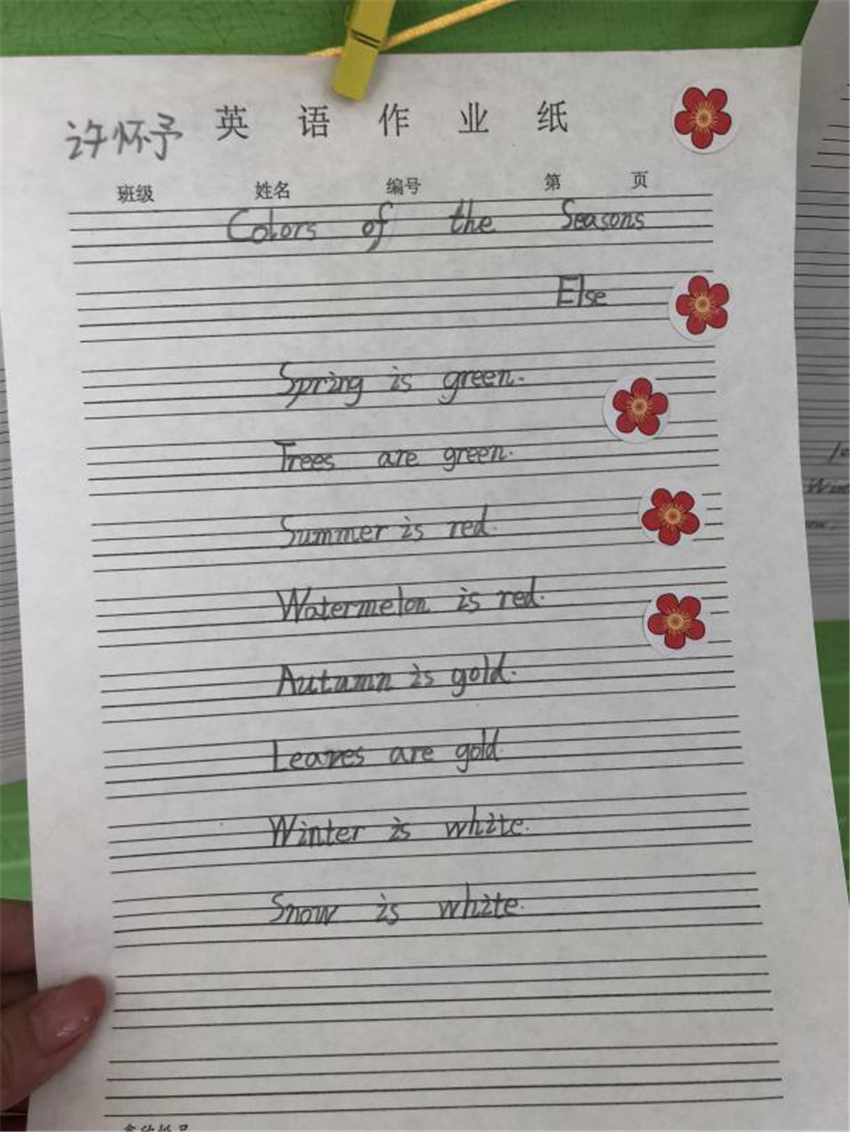 许怀予 英语作业纸
班级 姓名 编号 第 页
Colors of the Seasons
Else
Spring is green.
Trees are green.
Summer is red.
Watermelon is red.
Autumn is gold.
Leaves are gold.
Winter is white.
Snow is white.